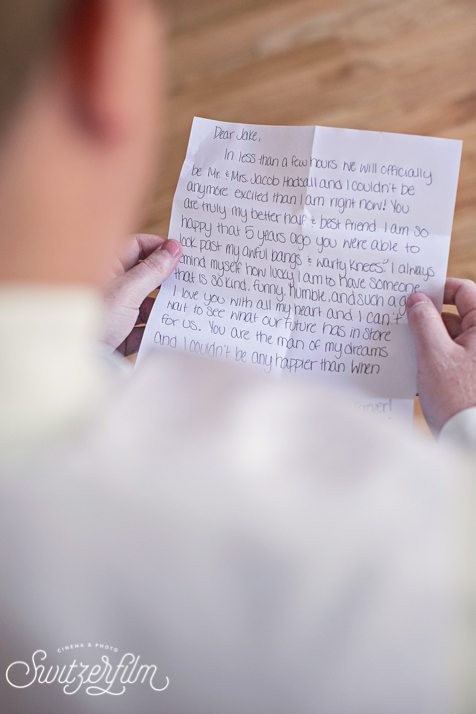 Dear Jake,
In less than a few hours we will officially
be Mr. & Mrs. Jacob Hadsall and I couldn't be
anymore excited than I am right now! You
are truly my better half & best friend. I am so
happy that 5 years ago you were able to
look past my awful bangs & "warty knees." I always
remind myself how lucky I am to have someone
that is so kind, funny, humble, and such a
I love you with all my heart and I can't
wait to see what our future has in store
for us. You are the man of my dreams
and I couldn't be any happier than when
CINEMA & PHOTO
Switzerfilm